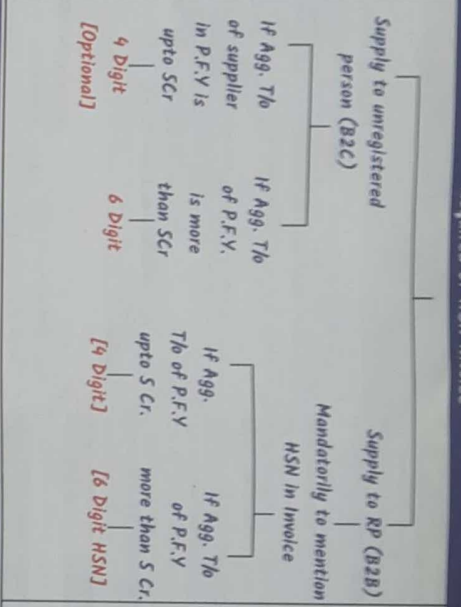 Supply to unregistered
person (B2C)
If Agg. T/o
of supplier
in P.F.Y is
upto 5Cr
4 Digit
[Optional]
If Agg. T/o
of P.F.Y.
is more
than 5Cr
6 Digit
Supply to RP (B2B)
Mandatorily to mention
HSN in Invoice
If Agg.
T/o of P.F.Y
upto 5 Cr.
[4 Digit]
If Agg. T/o
of P.F.Y
more than 5 Cr.
[6 Digit HSN]